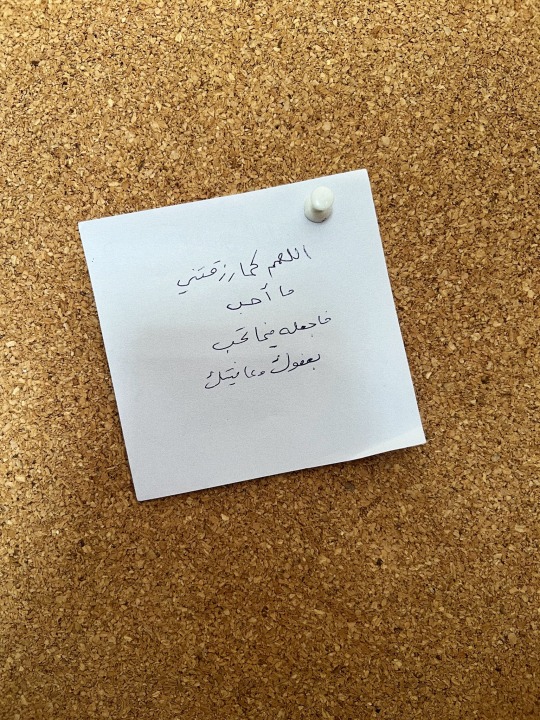 اللهم كما رزقتني
ما أحب
فاجعله فيما تحب
بعفوك وعافيتك